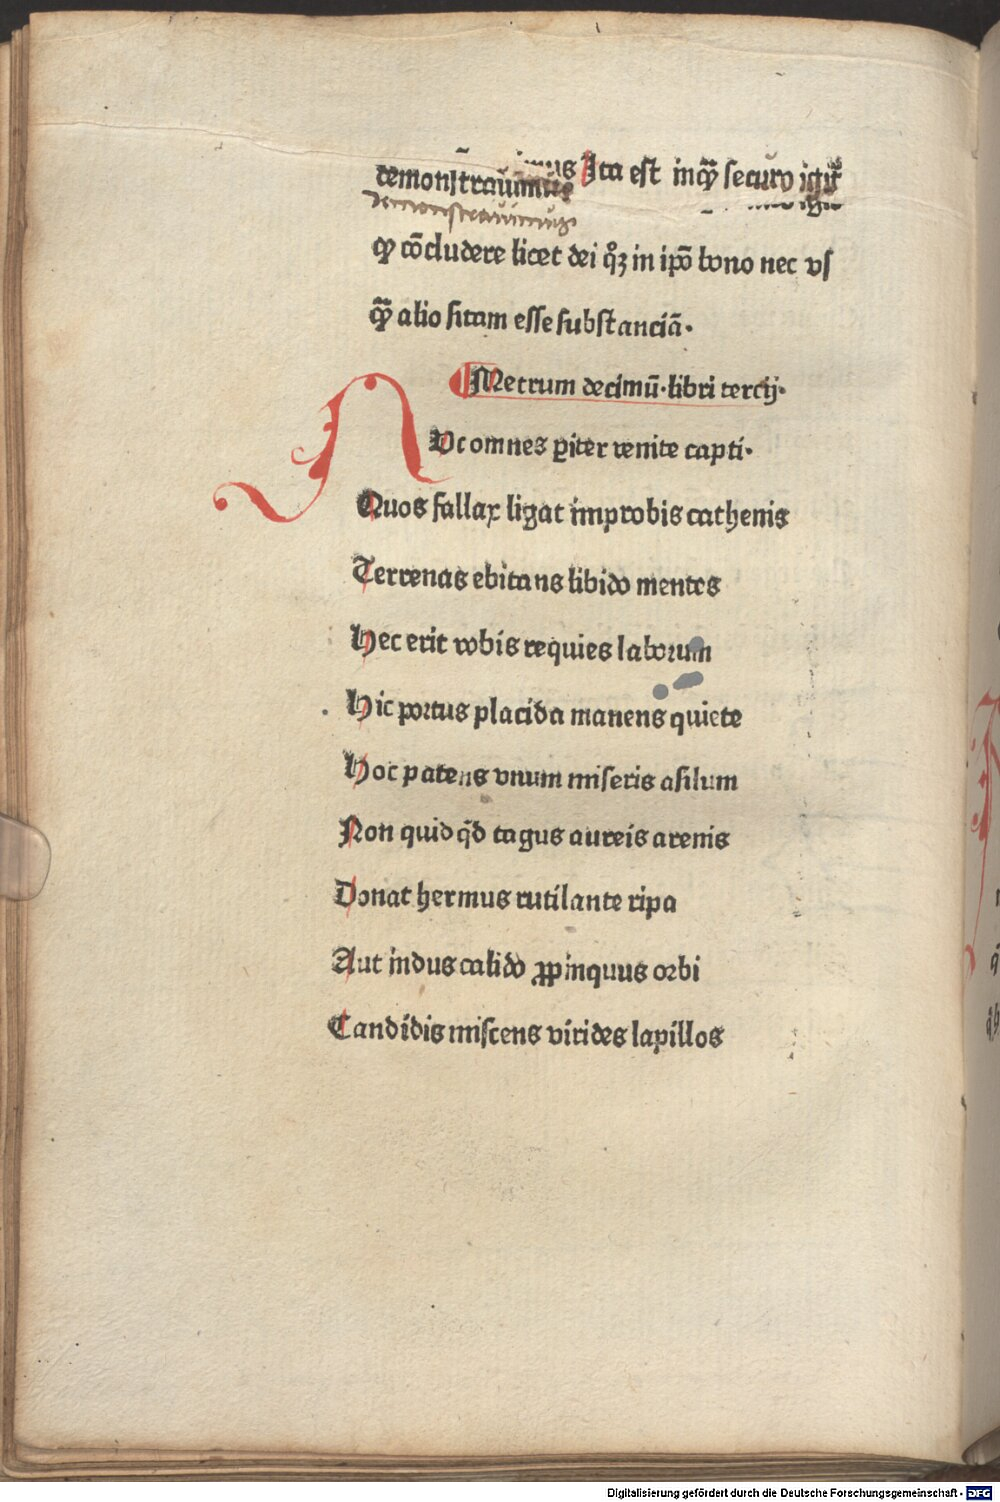 demonstrauimus Ita est inqȝ securo igit᷑
demonstrauimus
qȝ cōcludere licet dei qꝫ in ipō bono nec vſ
qȝ alio ſitam eſſe ſubſtanciā.
Metrum decimū.libri tercij.
Uc omnes ꝑiter venite capti.
Quos fallax ligat improbis cathenis
Terrenas ebitans libido mentes
Hec erit vobis requies laborum
Hic portus placida manens quiete
Hoc patens vnum miſeris aſilum
Non quid qd̄ tagus aureis arenis
Donat hermus rutilante ripa
Aut indus calido ꝓpinquus orbi
Candidis miſcens virides lapillos
Digitalisierung gefördert durch die Deutsche Forschungsgemeinschaft - DFG